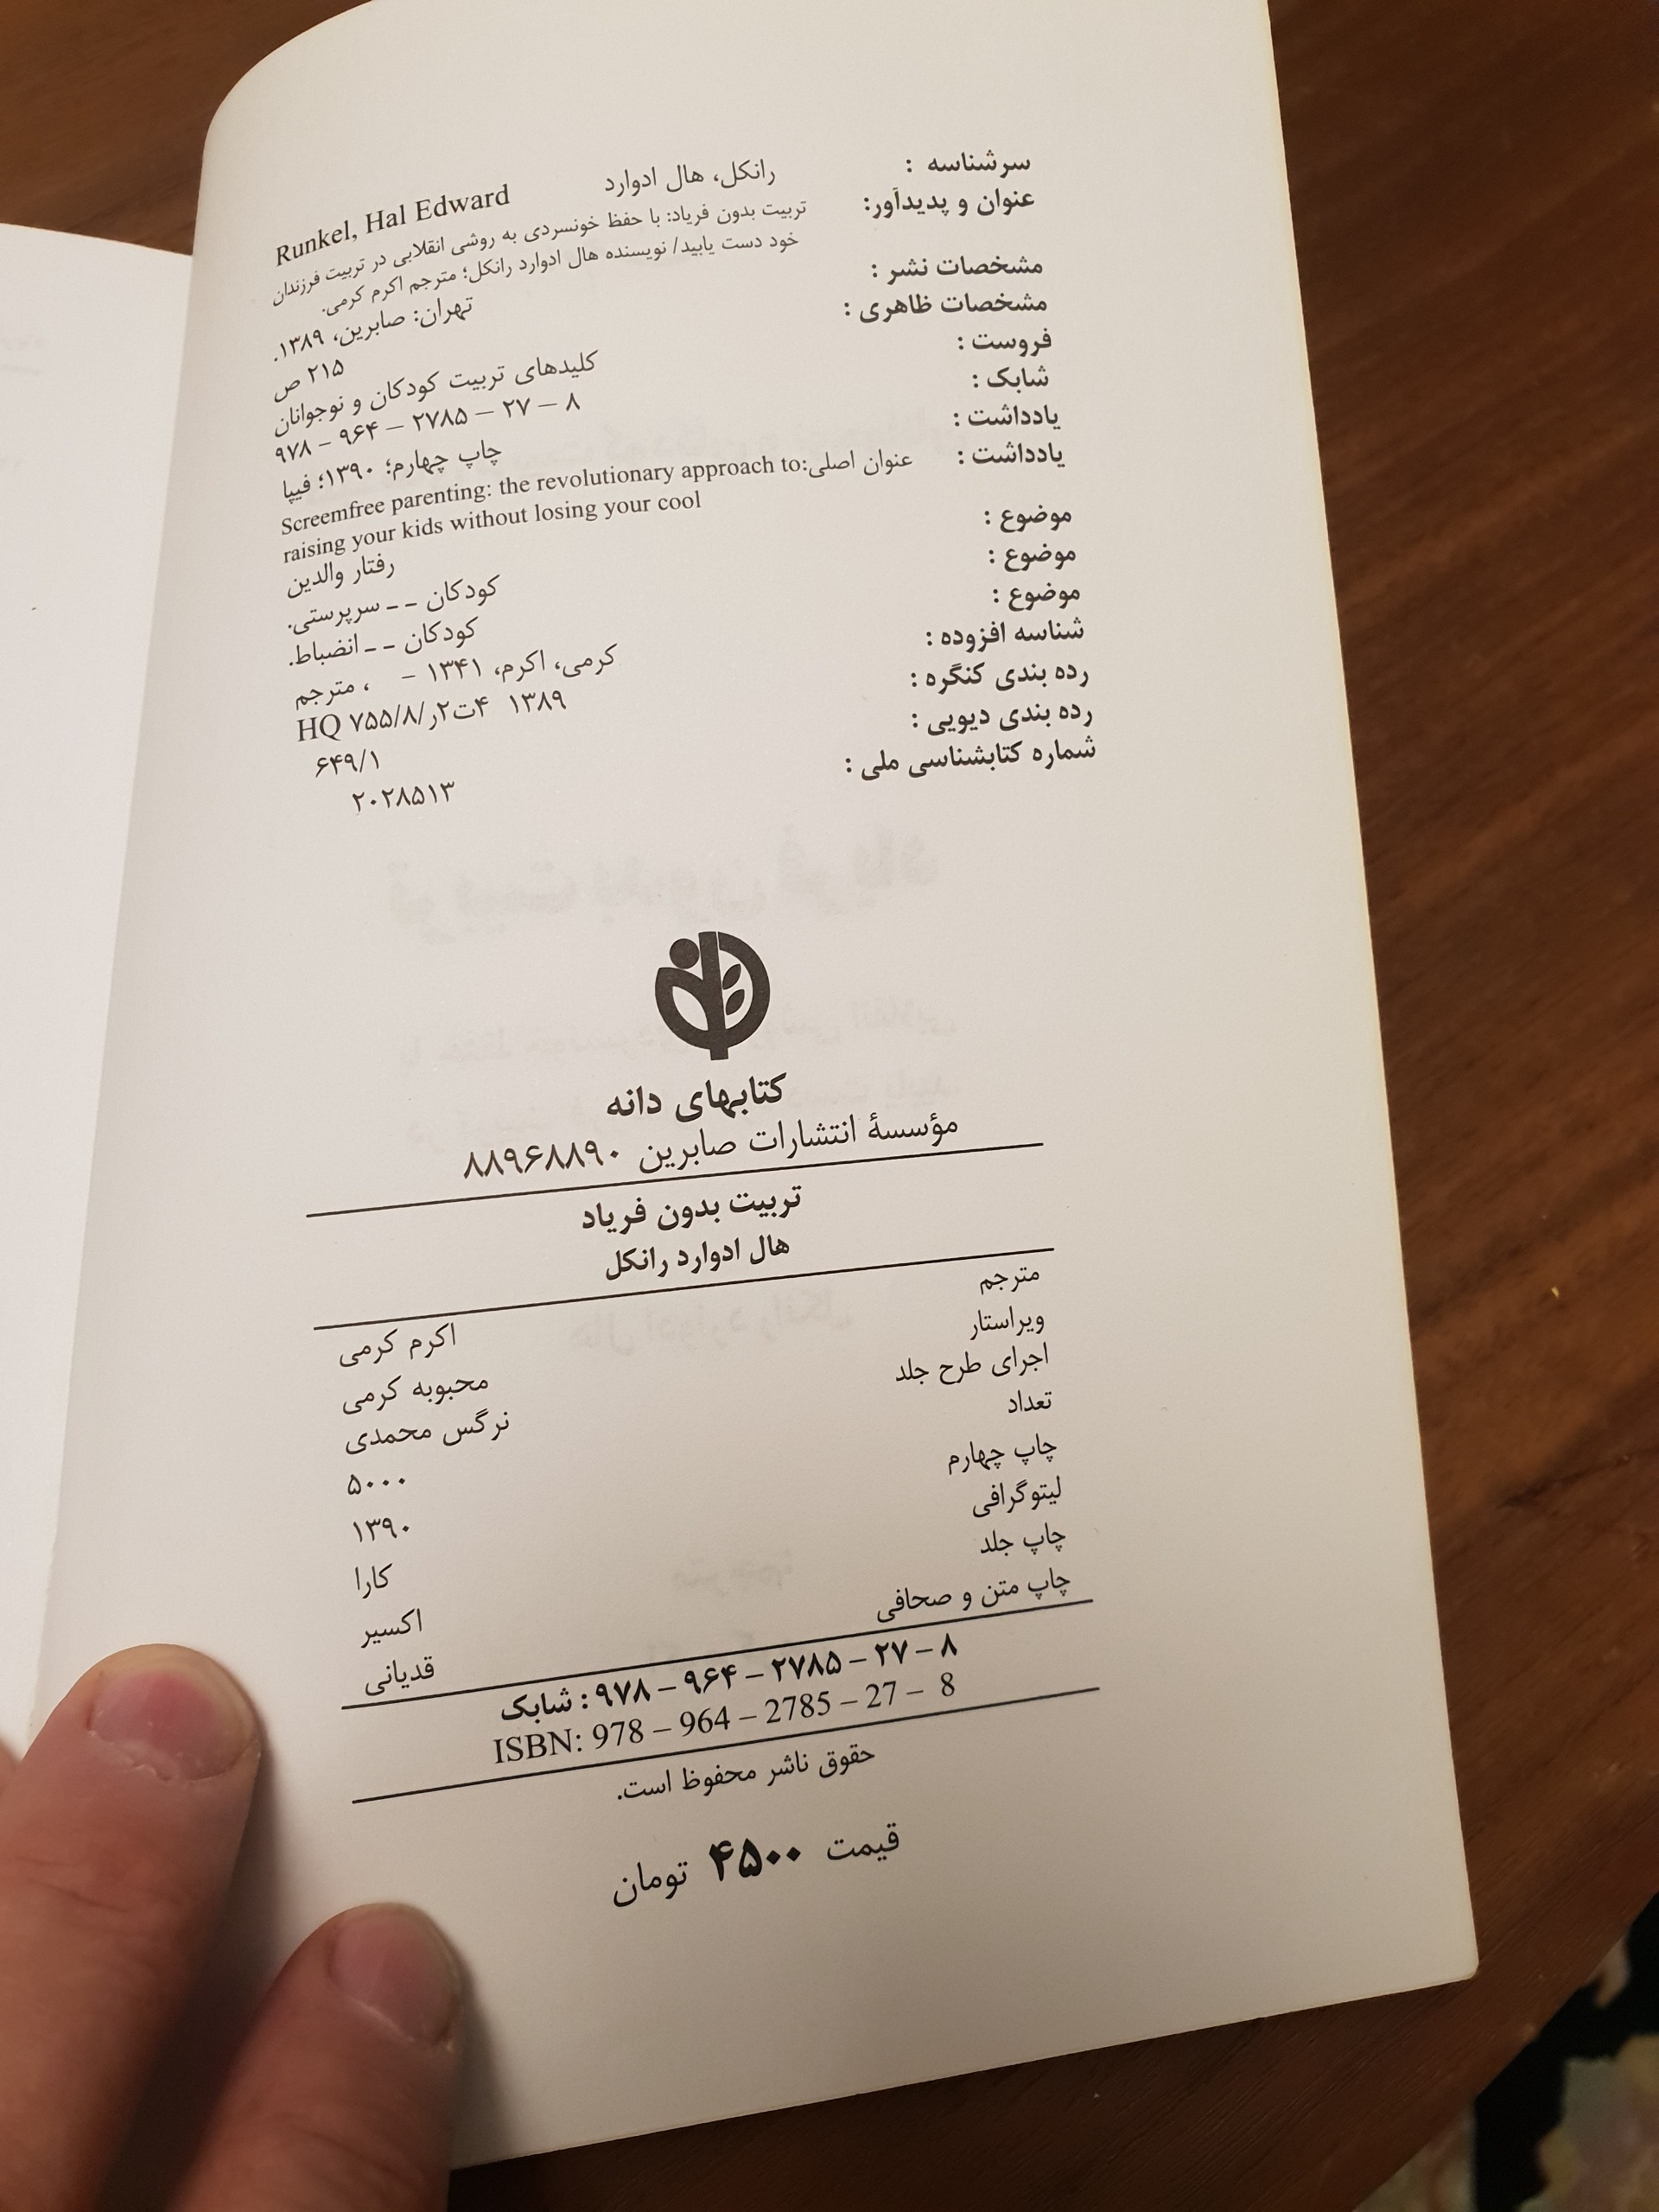 سرشناسه : رانکل، هال ادوارد Runkel, Hal Edward
عنوان و پدیدآور: تربیت بدون فریاد: با حفظ خونسردی به روشی انقلابی در تربیت فرزندان
خود دست یابید/ نویسنده هال ادوارد رانکل؛ مترجم اکرم کرمی.
مشخصات نشر : تهران: صابرین، ۱۳۸۹.
مشخصات ظاهری : ۲۱۵ ص
فروست : کلیدهای تربیت کودکان و نوجوانان
شابک : ۹۷۸ – ۹۶۴ – ۲۷۸۵ – ۲۷ – ۸
یادداشت : چاپ چهارم؛ ۱۳۹۰؛ فیپا
یادداشت : عنوان اصلی: Screemfree parenting: the revolutionary approach to
raising your kids without losing your cool
موضوع : رفتار والدین
موضوع : کودکان -- سرپرستی.
موضوع : کودکان -- انضباط.
شناسه افزوده : کرمی، اکرم، ۱۳۴۱ - ، مترجم
رده بندی کنگره : ۱۳۸۹ ۴ت۲ر/۷۵۵/۸ HQ
رده بندی دیویی : ۶۴۹/۱
شماره کتابشناسی ملی : ۲۰۲۸۵۱۳
کتابهای دانه
مؤسسۀ انتشارات صابرین ۸۸۹۶۸۸۹۰
تربیت بدون فریاد
هال ادوارد رانکل
مترجم اکرم کرمی
ویراستار محبوبه کرمی
اجرای طرح جلد نرگس محمدی
تعداد ۵۰۰۰
چاپ چهارم ۱۳۹۰
لیتوگرافی کارا
چاپ جلد اکسیر
چاپ متن و صحافی قدیانی
شابک : ۹۷۸ – ۹۶۴ – ۲۷۸۵ – ۲۷ – ۸
ISBN: 978 – 964 – 2785 – 27 – 8
حقوق ناشر محفوظ است.
قیمت ۴۵۰۰ تومان